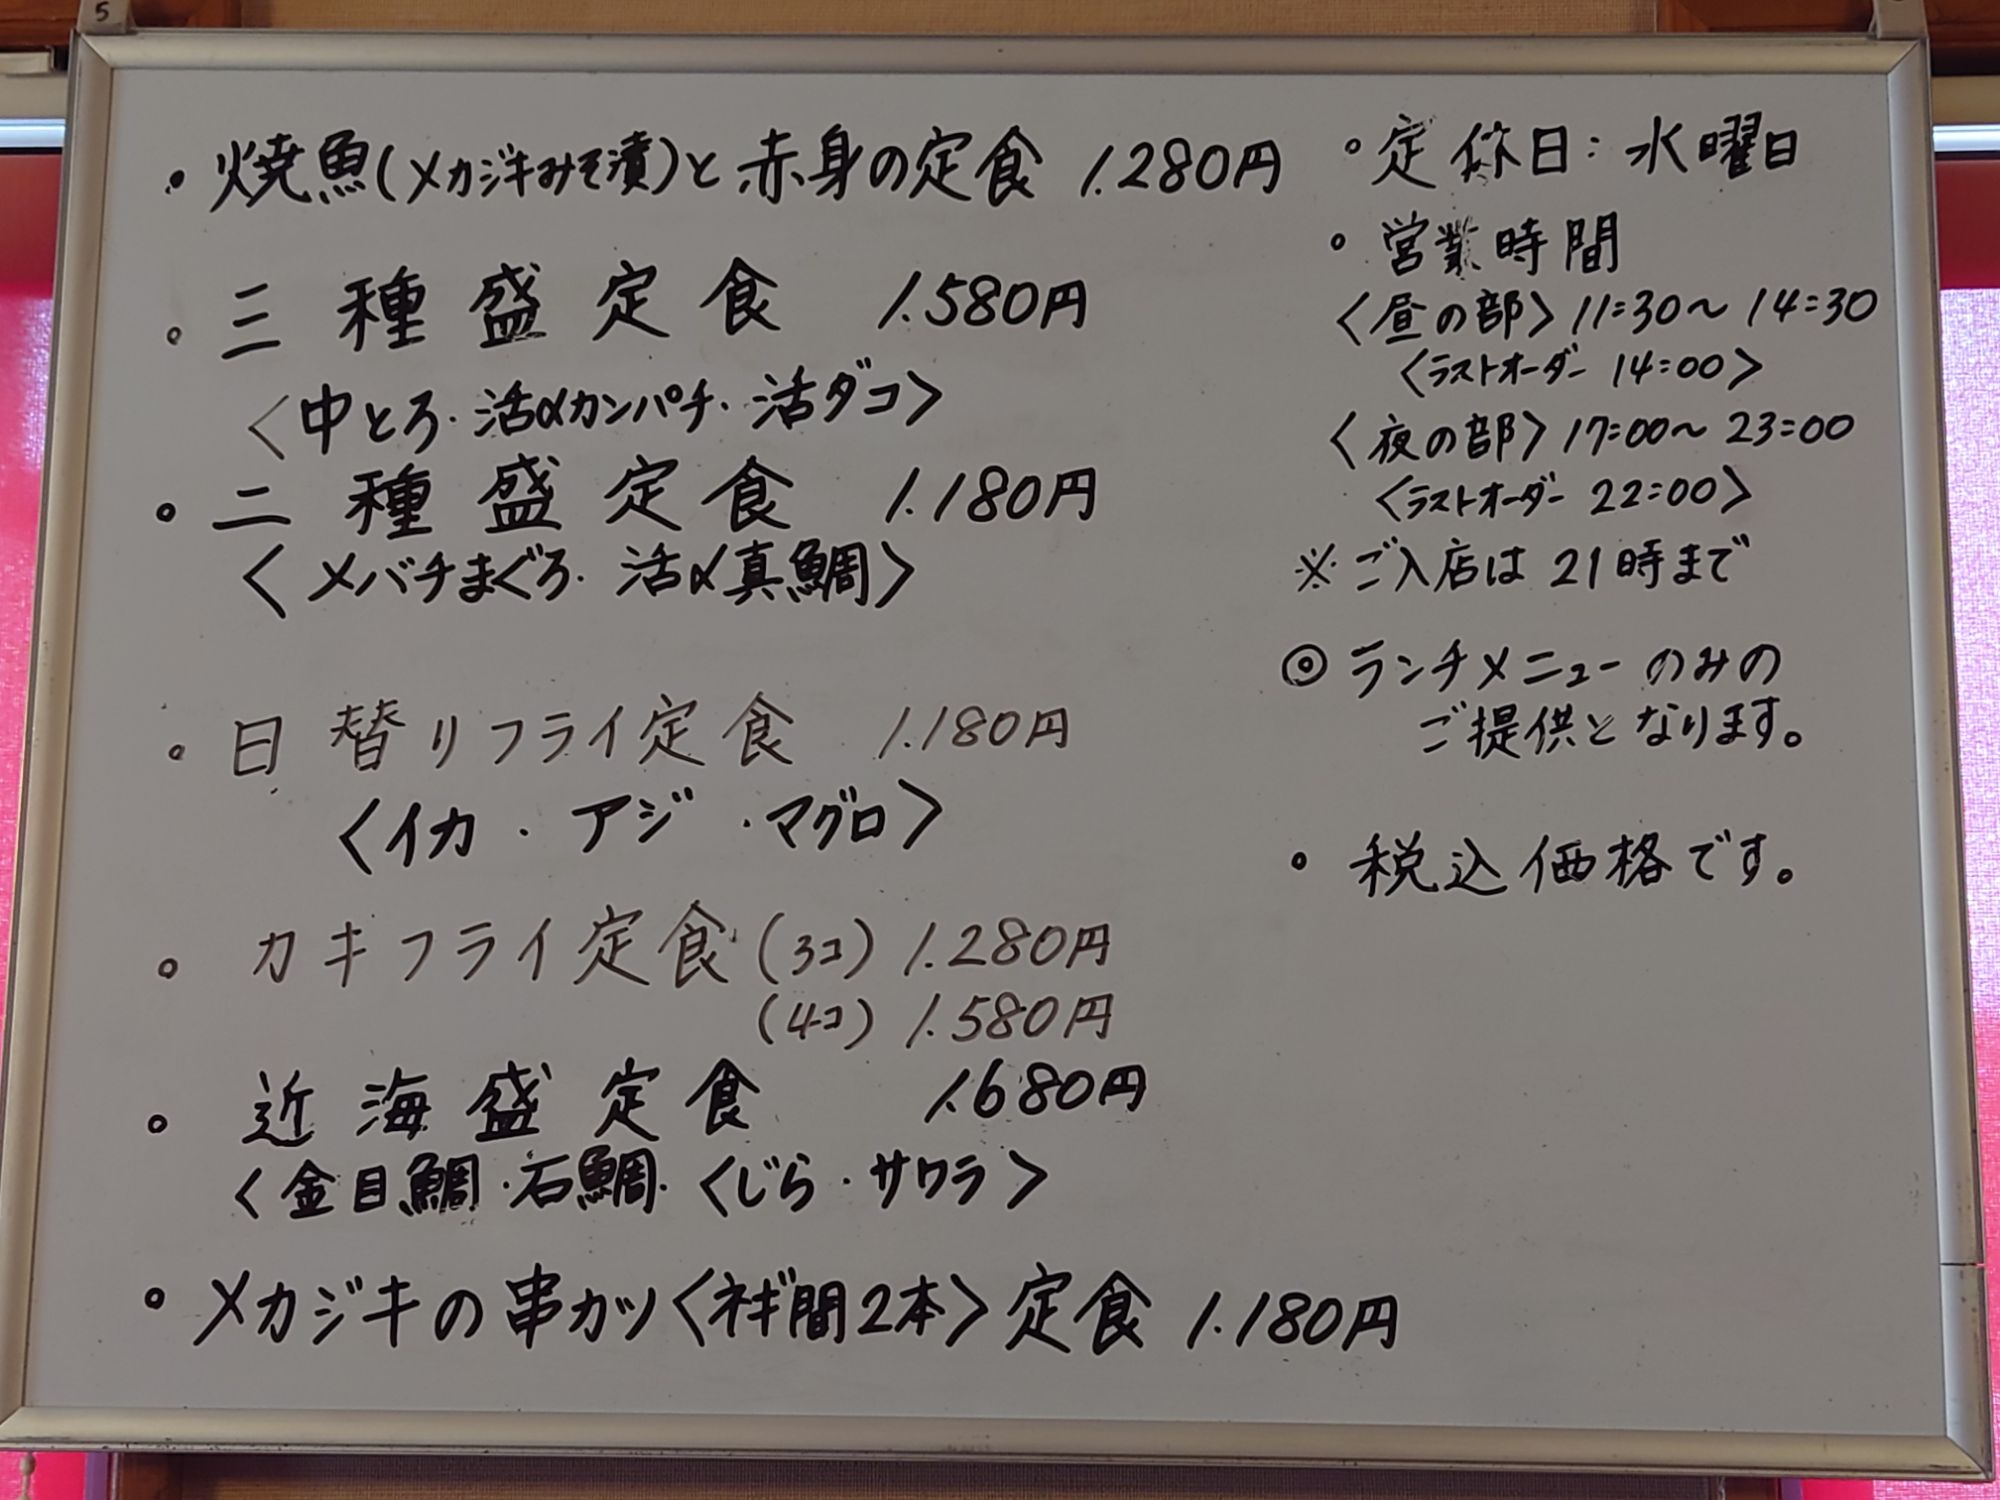 5
・焼魚(メカジキみそ漬)と赤身の定食 1.280円
。三種盛定食 1.580円
〈中とろ・活〆カンパチ・活ダコ〉
。二種盛定食 1.180円
〈メバチまぐろ・活〆真鯛〉
。日替りフライ定食 1.180円
〈イカ・アジ・マグロ〉
。カキフライ定食(3コ) 1.280円
(4コ) 1.580円
。近海盛定食 1.680円
〈金目鯛・石鯛・くじら・サワラ〉
。メカジキの串カツ〈ネギ間2本〉定食 1.180円
。定休日:水曜日
。営業時間
〈昼の部〉11:30〜14:30
〈ラストオーダー 14:00〉
〈夜の部〉17:00〜23:00
〈ラストオーダー 22:00〉
※ご入店は21時まで
◎ランチメニューのみの
ご提供となります。
。税込価格です。